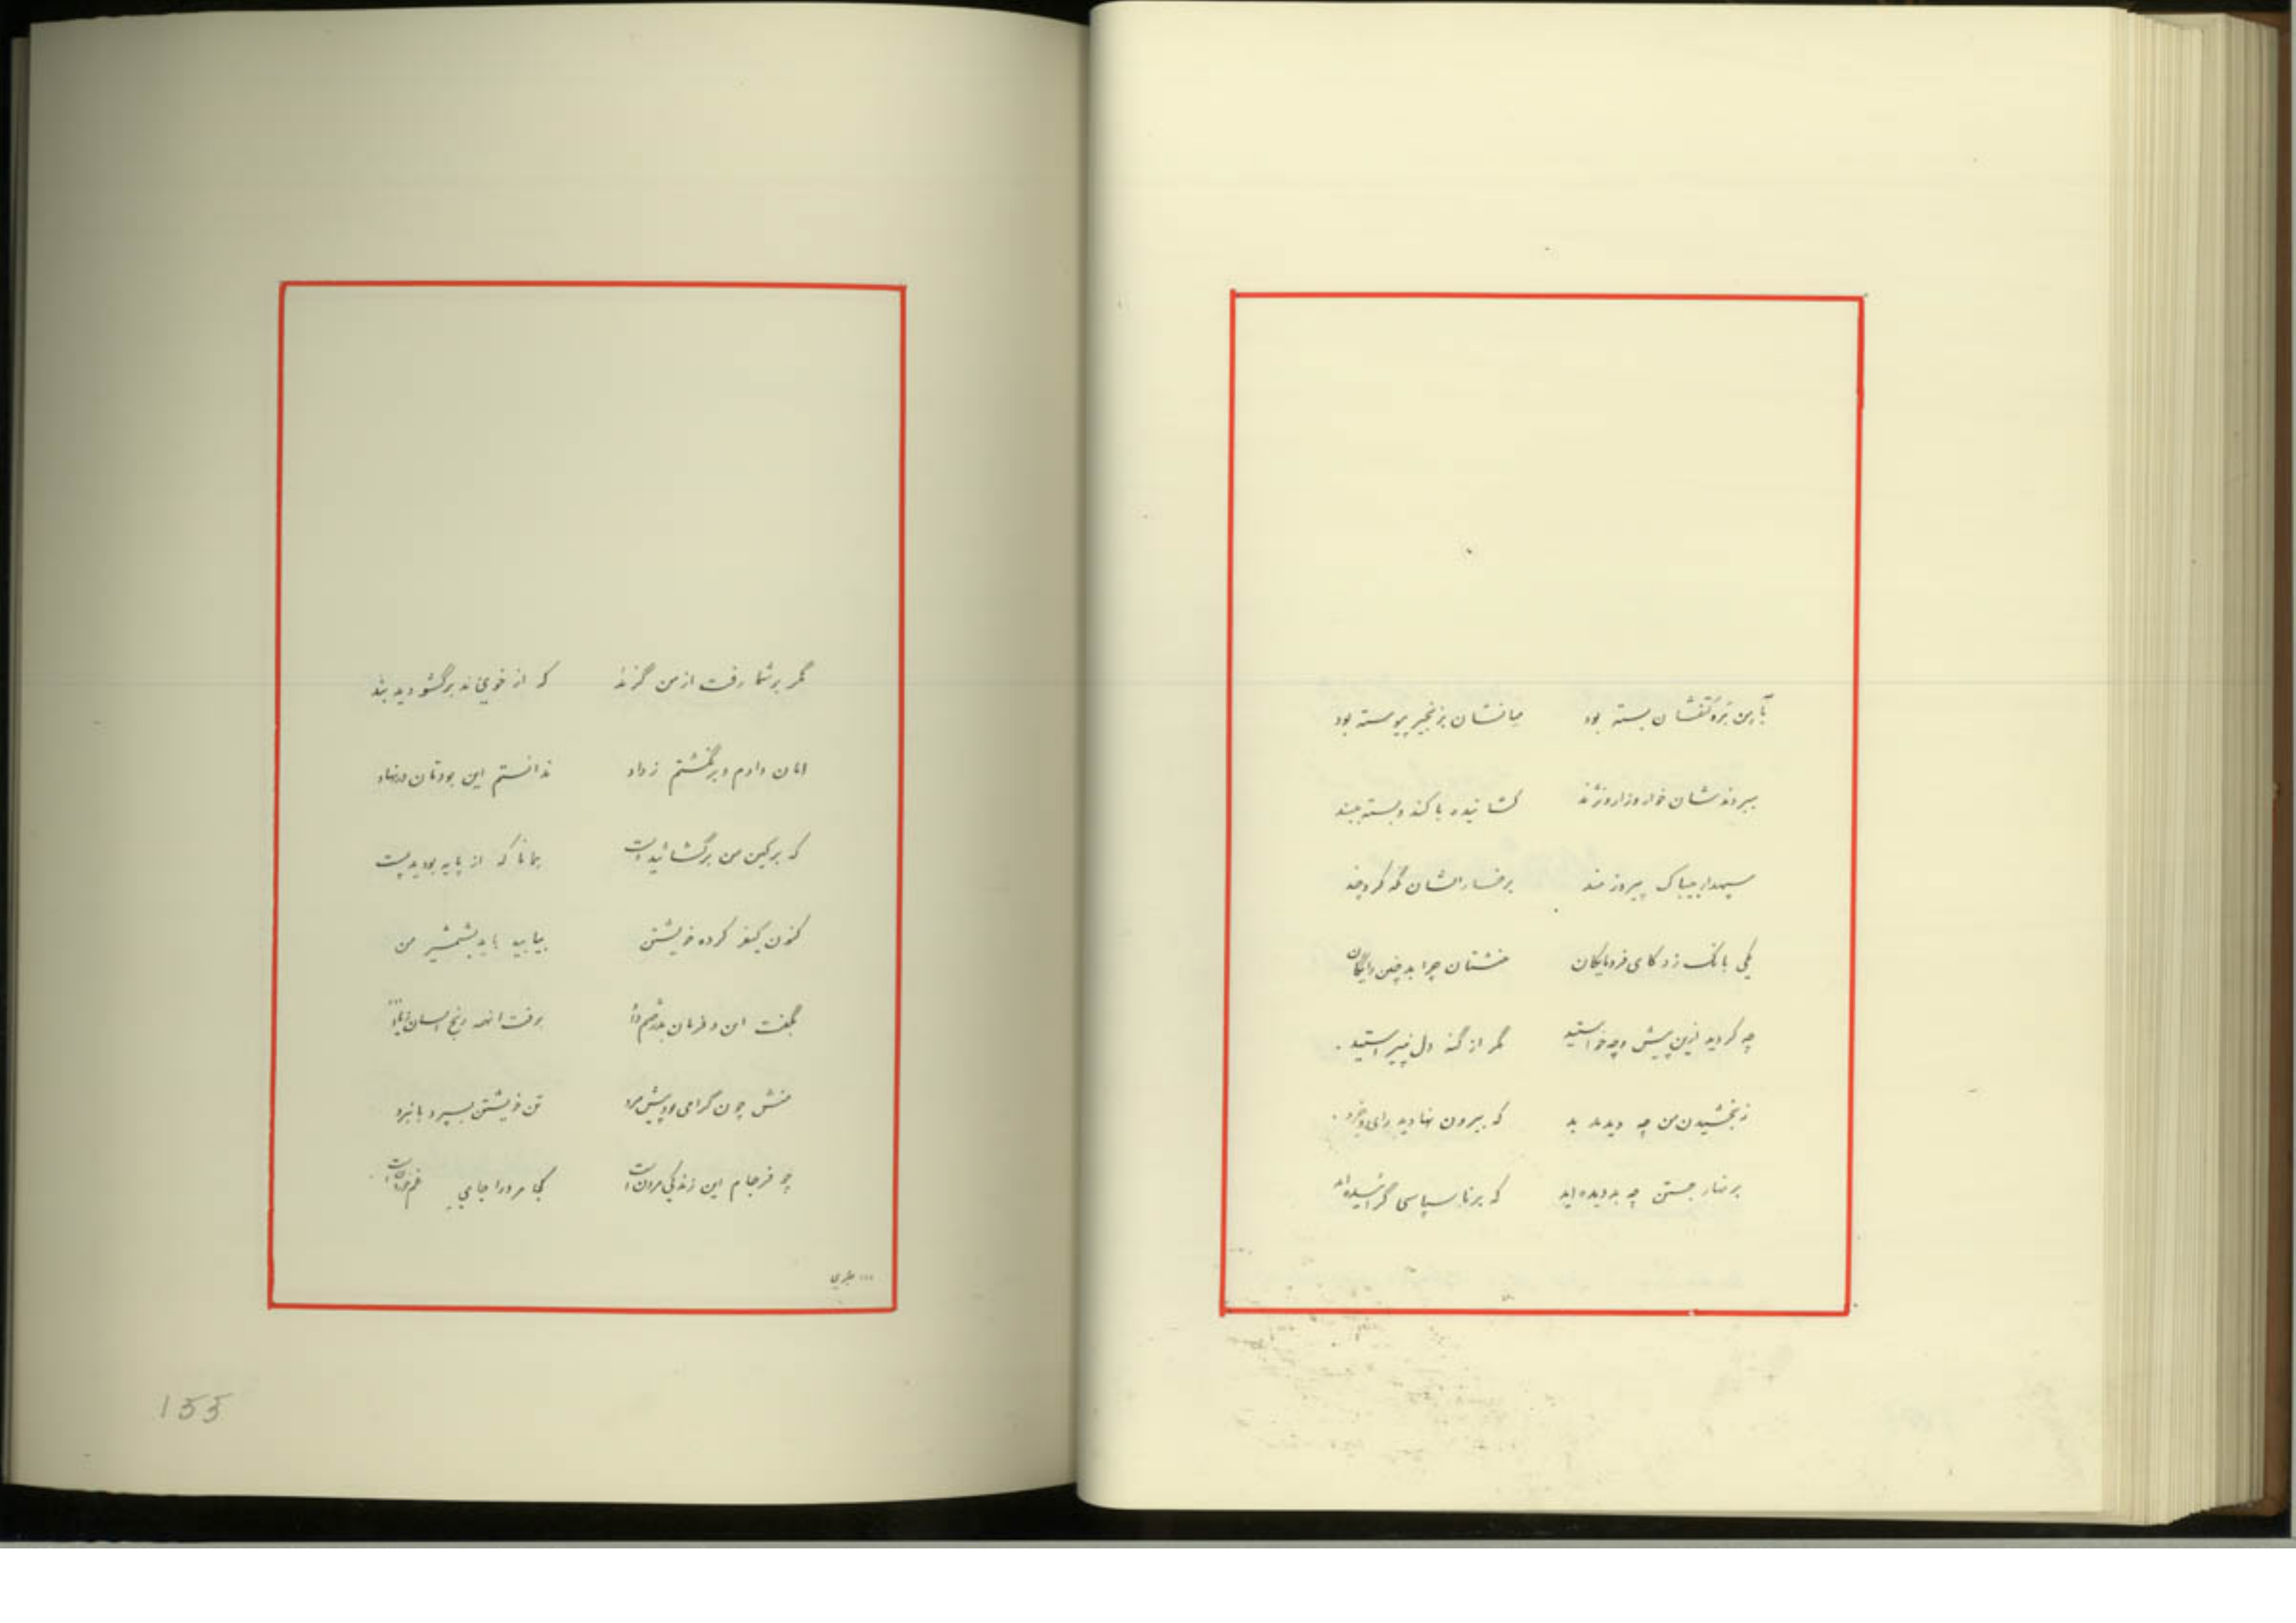 بسته بود میانشان بزنجیر پیوسته بود
ببردندشان خوار و زار و نژند
سپهدار بیباک پیروزمند برخسارشان نگه کرد چند
یکی بانگ زد کای فرومایگان منشتان چرا بد چنین رایگان
چه کردید ازین پیش و چه خواستید مگر از گنه دل نپیراستید .
زبخشیدن من چه دیدید بد که بیرون نهادید رای و خرد .
جستن چه بد دیده اید که برناسپاسی گرائیده اید
مگر بر شما رفت از من گزند که از خوی بد برگشودید بند
امان دادم و برنگشتم ز داد ندانستم این بودتان در نهاد
که بر کین من برگشائید دست همانا که از پایه بودید پست
کنون کیفر کرده خویشتن بیابید باید بشمشیر من
بگفت این و فرمان
منش چون گرامی بود پیش مرد تن خویشتن بسپرد با نبرد
چو فرجام این زندگی مردن است کجا مرد را جای غم خوردن است .
155